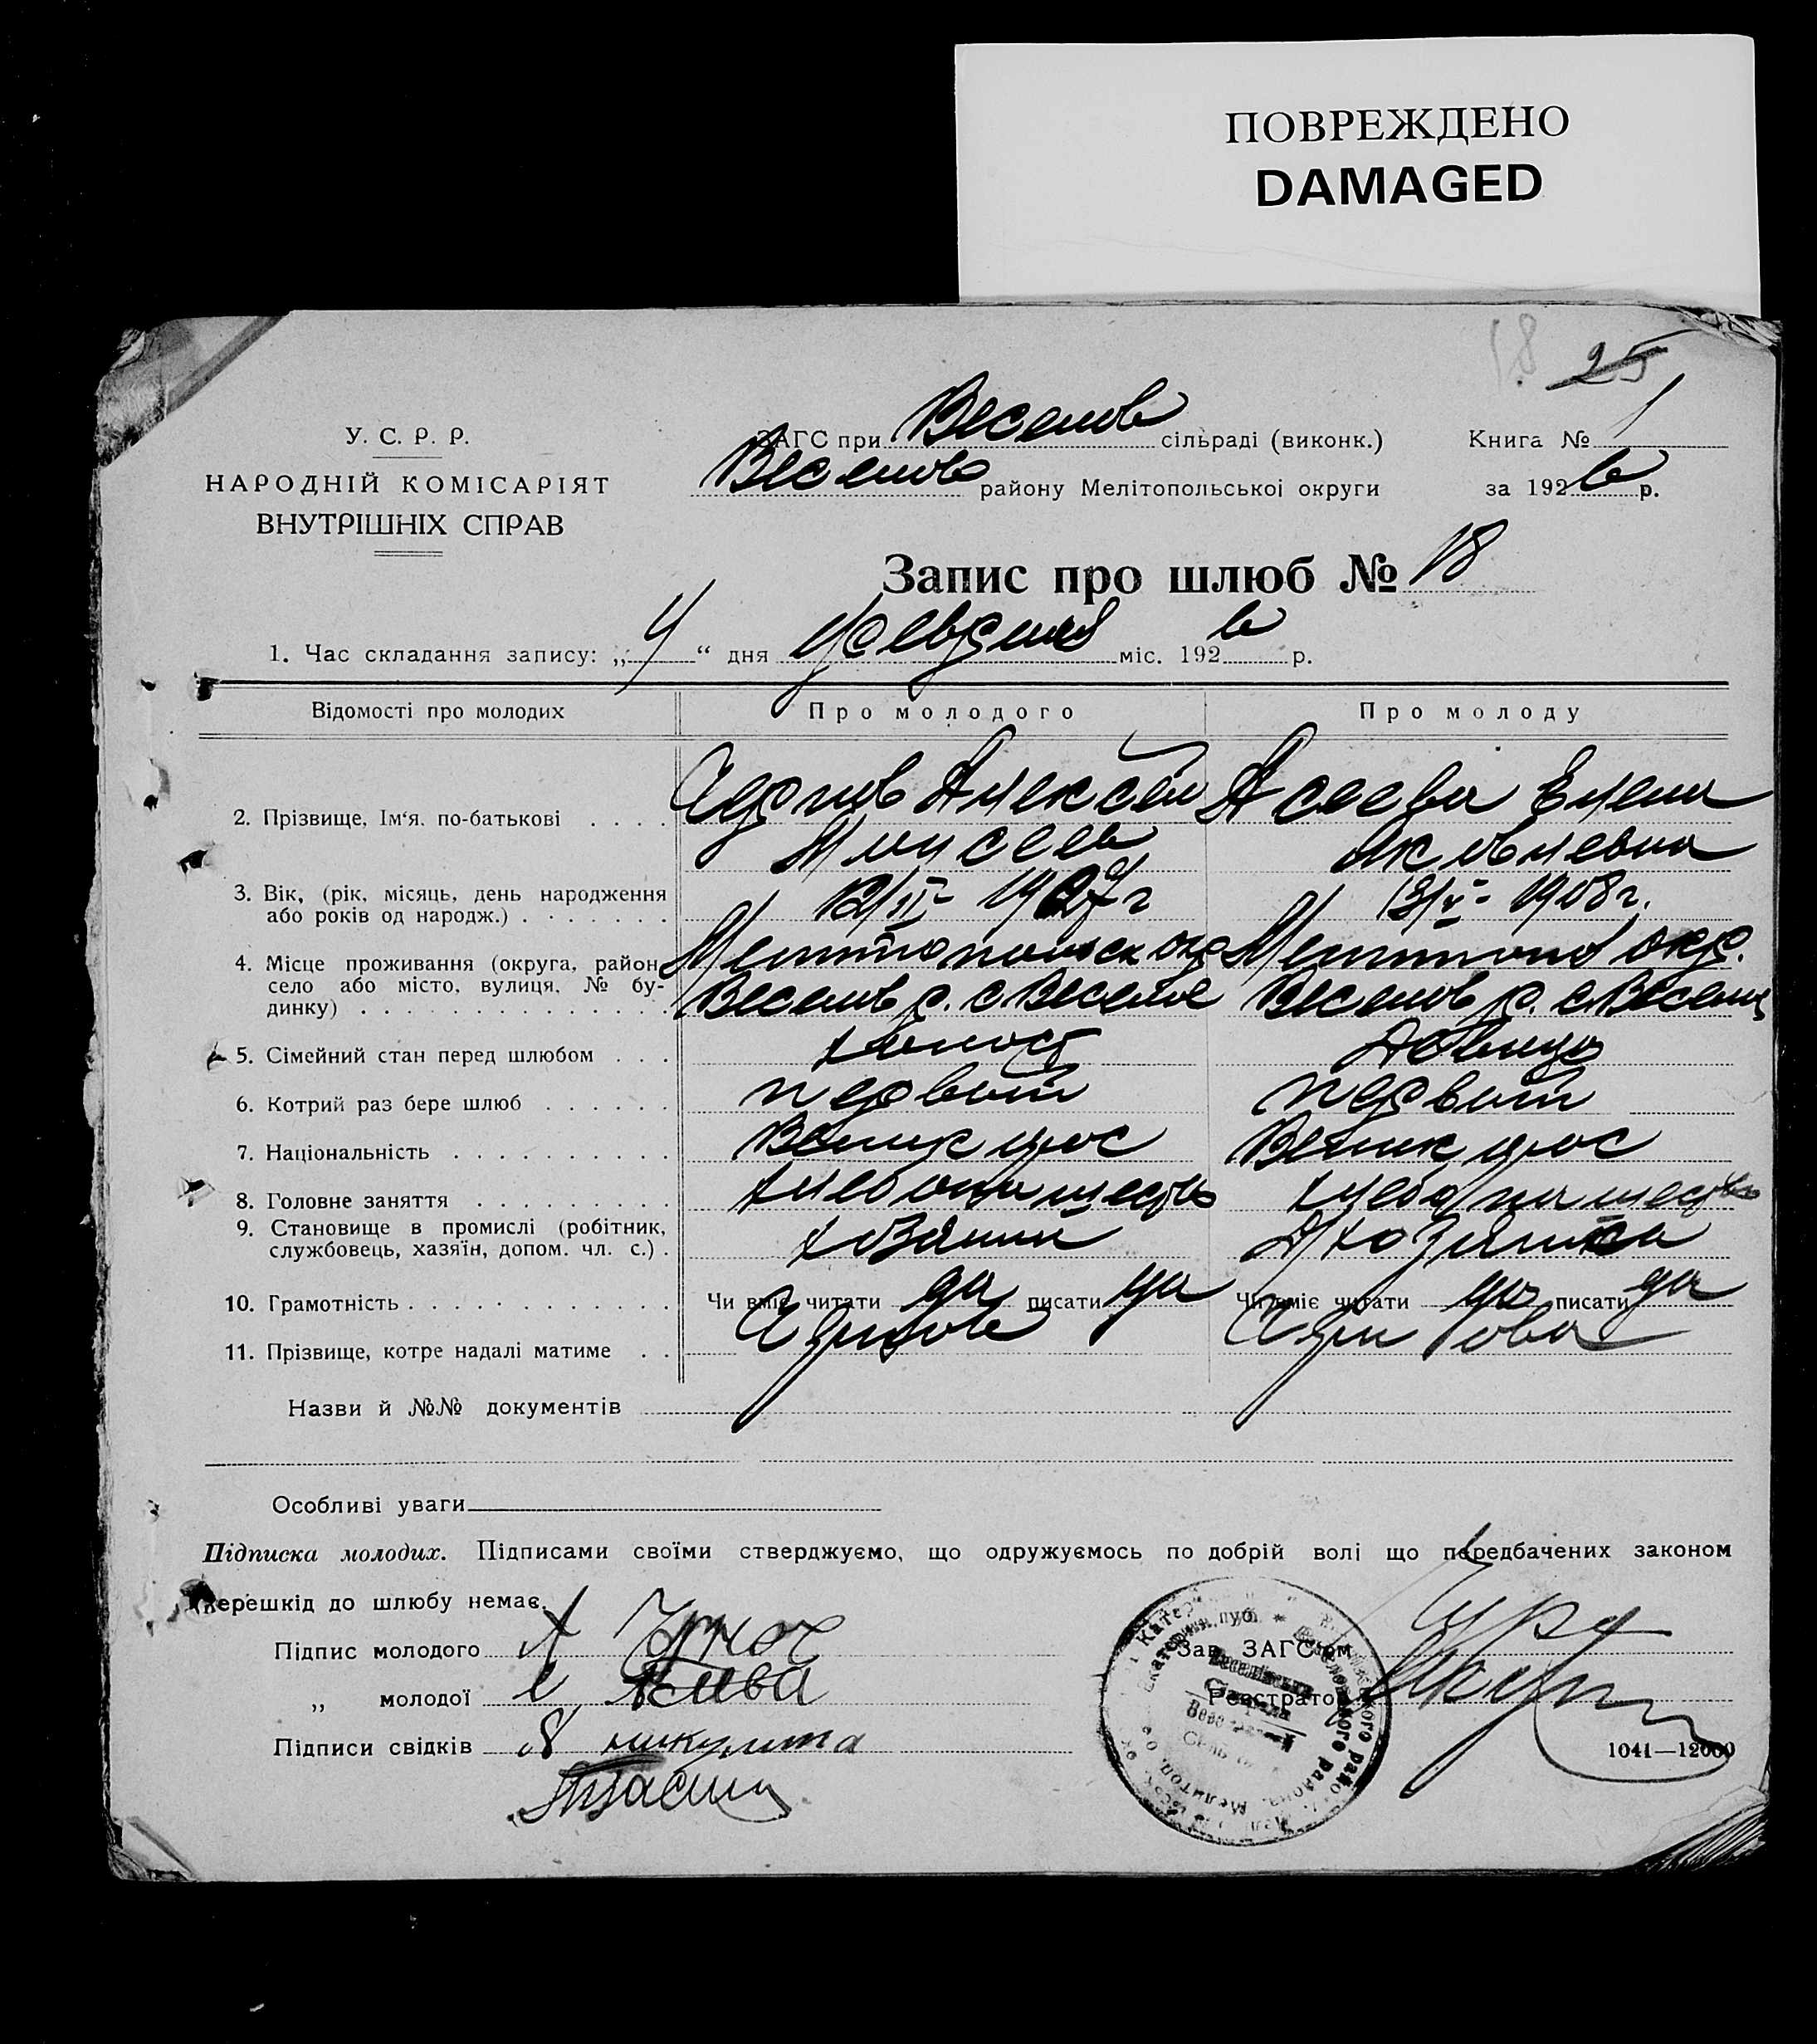 ПОВРЕЖДЕНО
DAMAGED
18 25
У. С. Р. Р.
НАРОДНІЙ КОМІСАРІЯТ
ВНУТРІШНІХ СПРАВ
ЗАГС при Веселов сільраді (виконк.) Книга № 1
Веселов району Мелітопольської округи за 1926 р.
Запис про шлюб № 18
1. Час складання запису: „4“ дня февраля міс. 1926 р.
Відомості про молодих Про молодого Про молоду
2. Прізвище, Ім‘я, по-батькові . . . . Алексей Асеева Елена
Моисеев Яковлевна
3. Вік, (рік, місяць, день народження
або років од народж.) . . . . . . . 1908 г.
4. Місце проживання (округа, район, Мелитопольск окр Мелитопол окр.
село або місто, вулиця, № бу- Веселов р. с Веселое Веселов р. с Весел
динку) . . . . . . . . . . . . . .
5. Сімейний стан перед шлюбом . . . холост девица
6. Котрий раз бере шлюб . . . . . . первый первый
7. Національність . . . . . . . . . . Великорос Великорос
8. Головне заняття . . . . . . . . . хлебопашество хлебопашество
9. Становище в промислі (робітник,
службовець, хазяїн, допом. чл. с.) . хозяин
10. Грамотність . . . . . . . . . . . . Чи вміє читати да писати да Чи вміє читати да писати да
11. Прізвище, котре надалі матиме . .
Назви й №№ документів
Особливі уваги
Підписка молодих. Підписами своїми стверджуємо, що одружуємось по добрій волі що передбачених законом
перешкід до шлюбу немає.
Підпис молодого А
„ молодої Е Асеева
Зав. ЗАГС'ом
Реєстратор
Підписи свідків Микулина
1041—12000